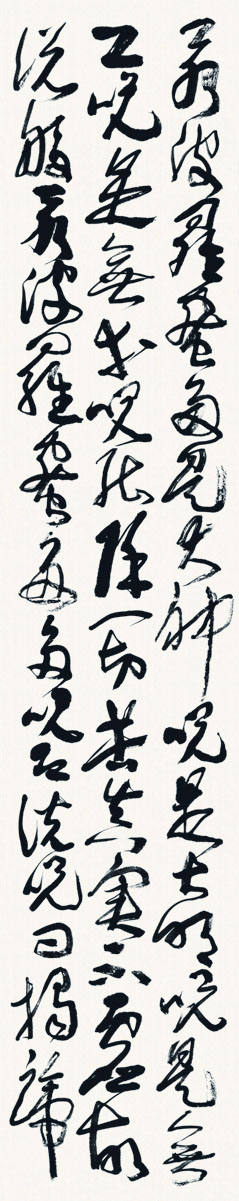 若波羅蜜多是大神呪是大明呪是無
上呪是無等呪能除一切苦真實不虛故
說般若波羅蜜多呪即說呪曰揭諦